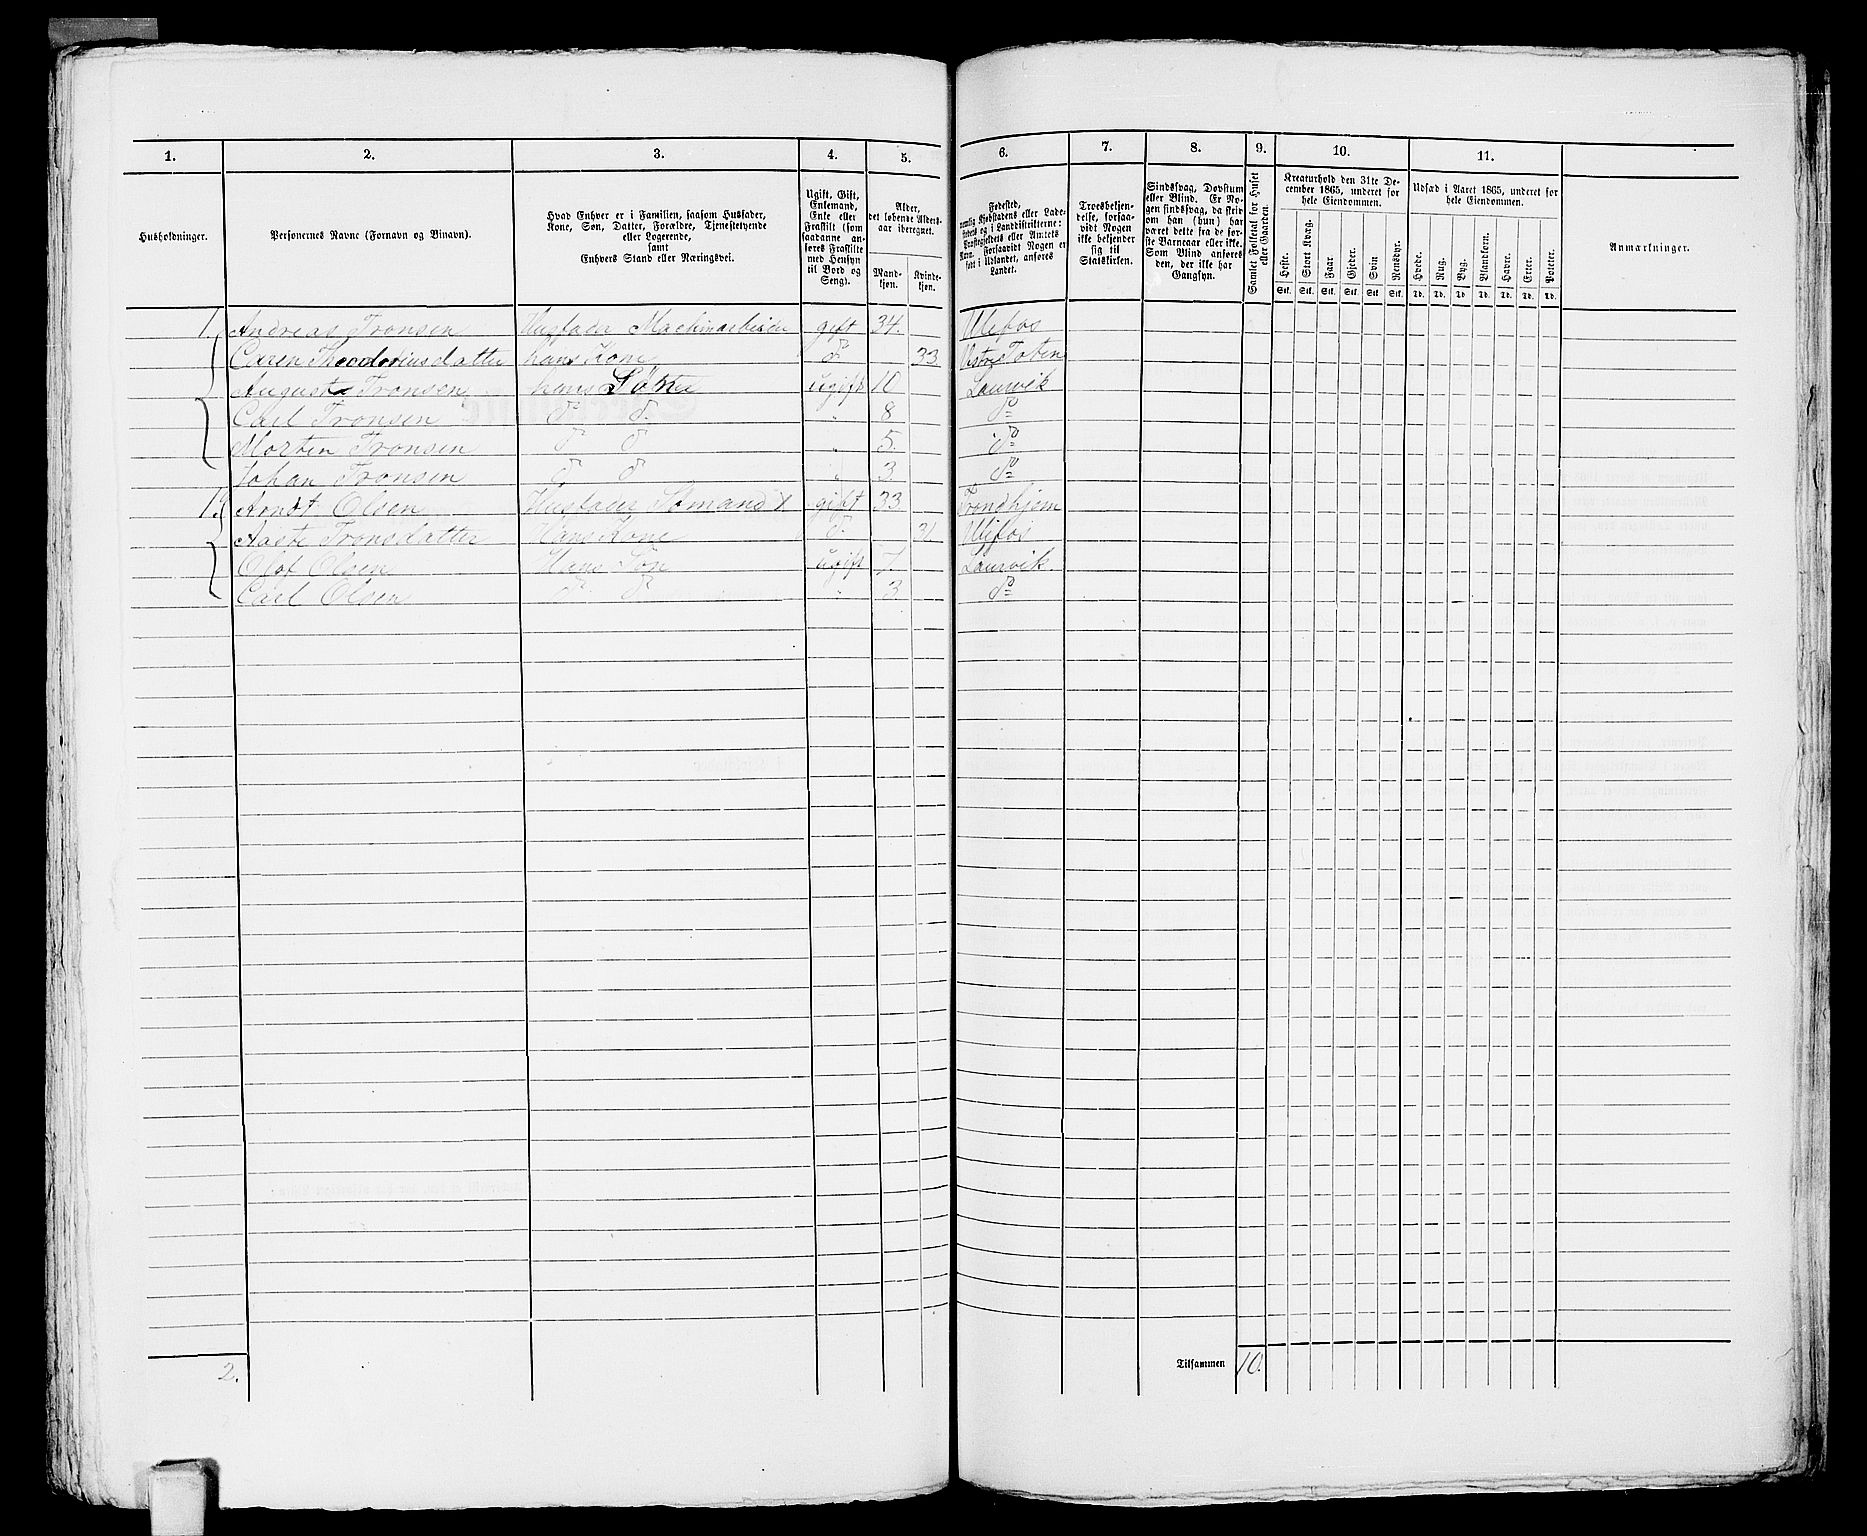 1. 2. 3. 4. 5. 6. 7. 8. 9. 10. 11.
Husholdninger.
Personernes Navne (Fornavn og Binavn).
Hvad Enhver er i Familien, saasom Husfader,
Kone, Søn, Datter, Forældre, Tjenestetyende
eller Logerende,
samt
Enhvers Stand eller Næringsvei.
Ugift, Gift,
Enkemand,
Enke eller
Fraskilt (som
saadanne an-
føres Fraskilte
med Hensyn
til Bord og
Seng).
Alder,
det løbende Alders-
aar iberegnet.
Mand-
kjøn.
Kvinde-
kjøn.
Fødested,
nemlig Kjøbstadens eller Lade-
stedets og i Landdistrikterne:
Præstegjeldets eller Amtets
Navn. Forsaavidt Nogen er
født i Udlandet, anføres
Landet.
Troesbekjen-
delse, forsaa-
vidt Nogen
ikke bekjender
sig til
Statskirken.
Sindssvag, Døvstum
eller Blind. Er No-
gen sindssvag, da skriv
om han (hun) har
været dette fra de før-
ste Barneaar eller ikke.
Som Blind anføres
den, der ikke har
Gangsyn.
Samlet Folketal for Huset
eller Gaarden.
Kreaturhold den 31te De-
cember 1865, underet for
hele Eiendommen.
Heste. Stort Kvæg. Faar Gjeder. Svin Rensdyr.
Stk. Stk. Stk. Stk. Stk. Stk.
Udsæd i Aaret 1865, underet for
hele Eiendommen.
Hvede. Rug. Byg. Blandkorn. Havre. Erter. Poteter.
Td. Td. Td Td. Td. Td. Td.
Anmærkninger.
1. Andreas Tronsen Husfader Machinarbeider gift 34. Ulefos
Caren Theodoriusdatter hans Kone do 33 Vestre Toten
August Tronsen hans Sønne ugift 10 Laurvik
Carl Tronsen do do. " 8 do
Morten Tronsen do do " 5. do
Johan Tronsen do do " 3 do
1. Arndt Olsen Husfader Sømand X gift 33 Trondhjem
Aaste Tronsdatter Hans Kone do. 31 Ulefos
Olof Olsen Hans Søn ugift 7 Laurvik.
Carl Olsen do do " 3 do
2. Tilsammen 10.